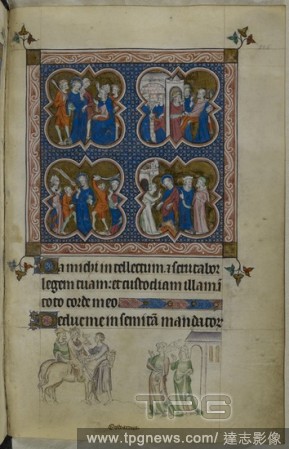 Da michi intellectum ⁊ scrutabor
legem tuam: et custodiam illam ī
toto corde meo.
Deduc me in semitā mandator
TPG
www.tpgnews.com/ 達志影像